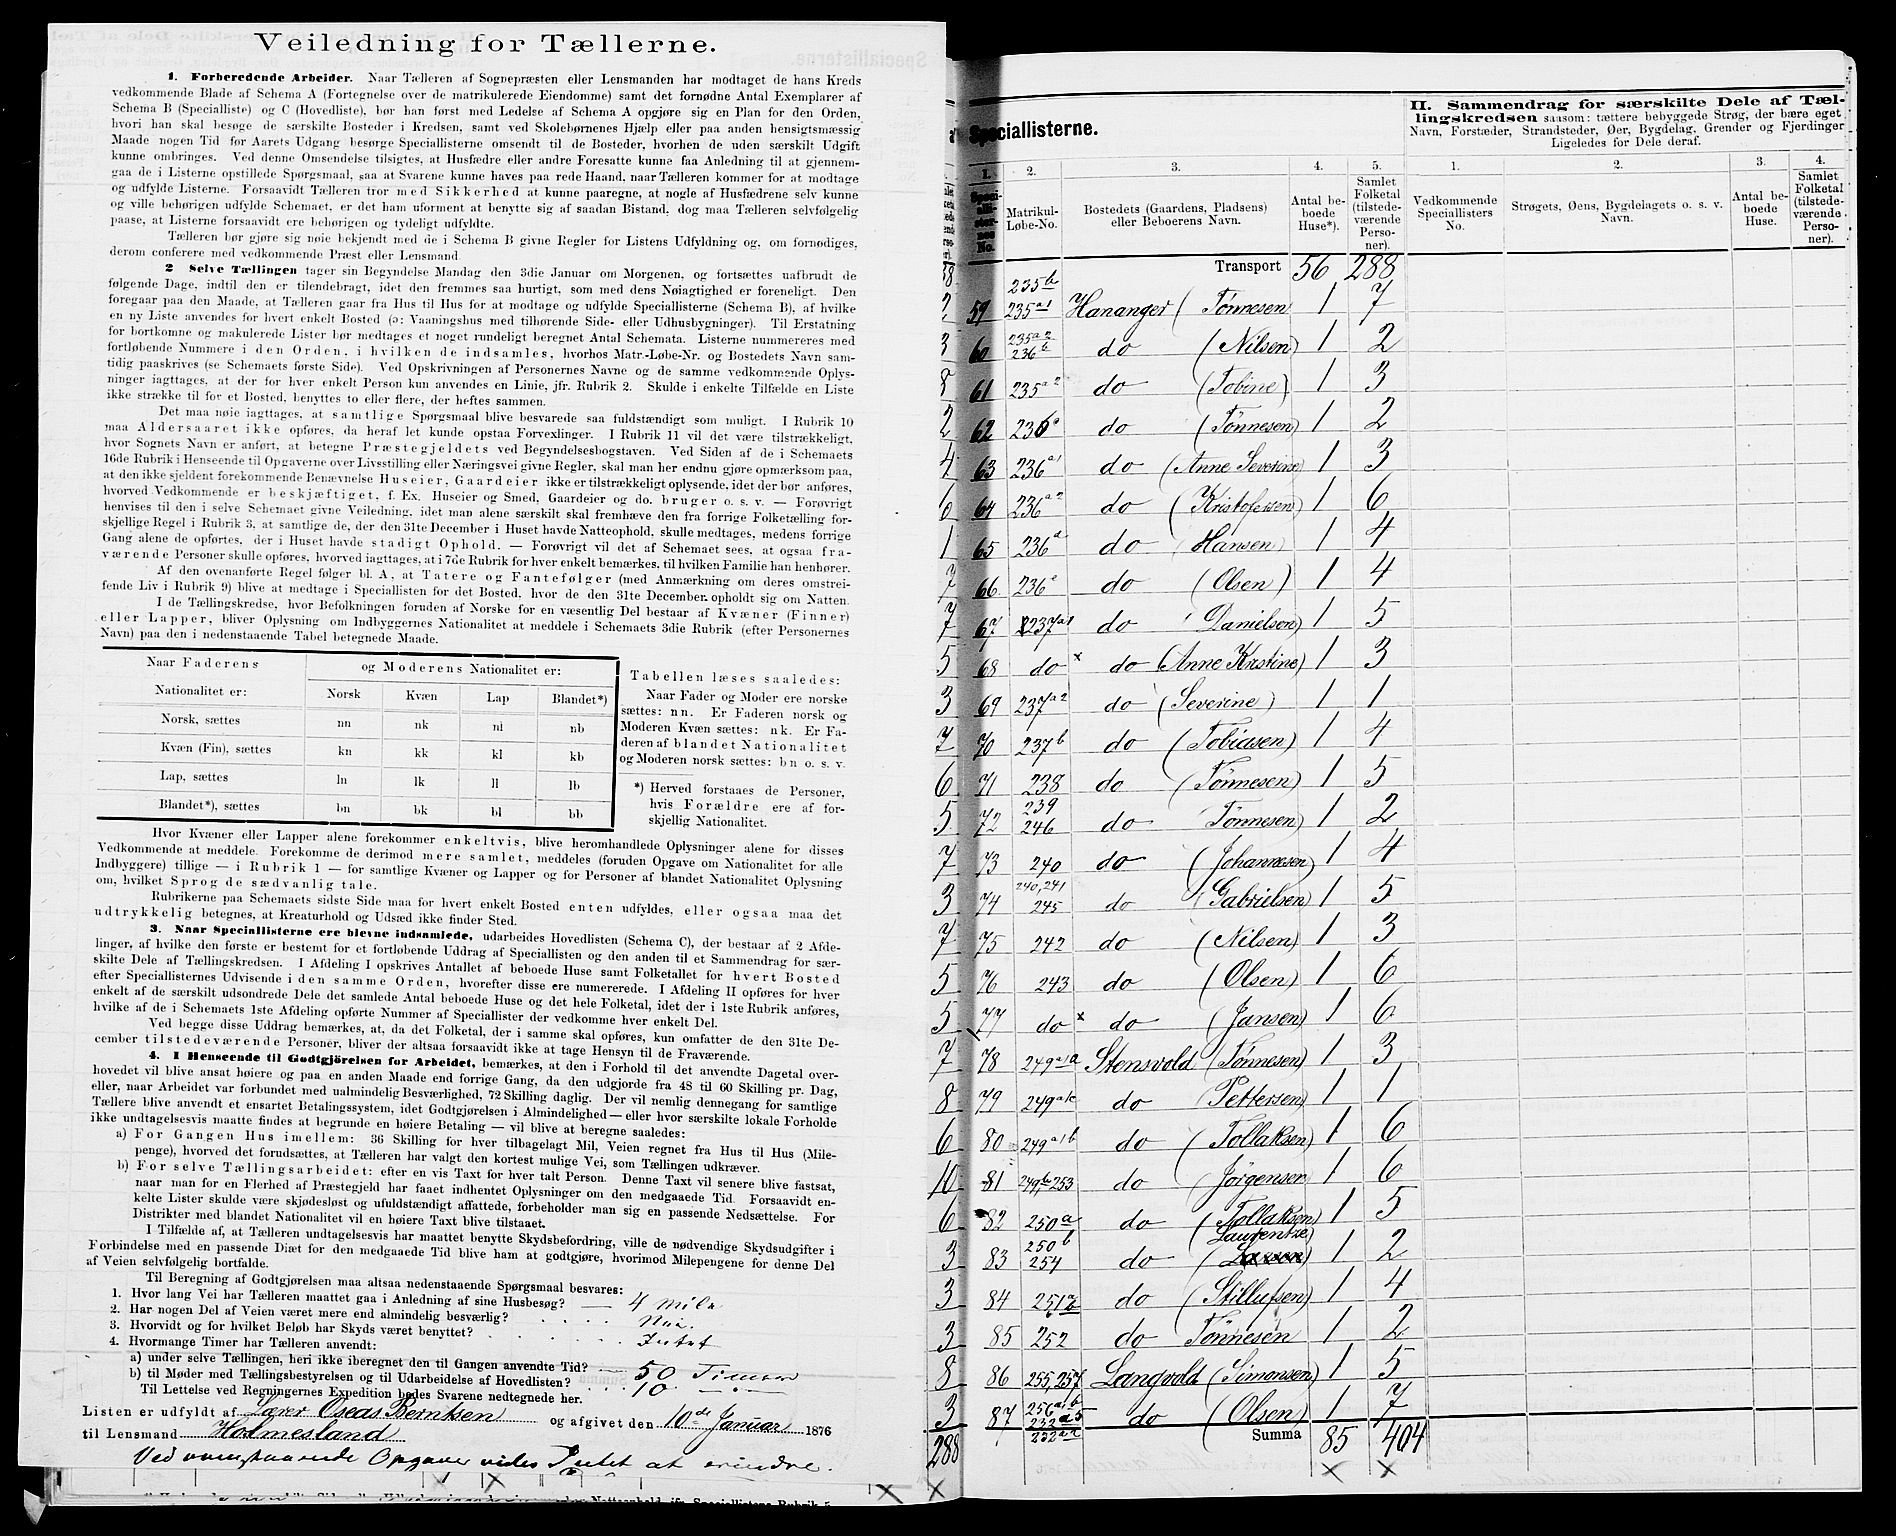 Veiledning for Tællerne.
1. Forberedende Arbeider. Naar Tælleren af Sognepræsten eller Lensmanden har modtaget de hans Kreds
vedkommende Blade af Schema A (Fortegnelse over de matrikulerede Eiendomme) samt det fornødne Antal Exemplarer af
Schema B (Specialliste) og C (Hovedliste), bør han først med Ledelse af Schema A opgjøre sig en Plan for den Orden,
hvori han skal besøge de særskilte Bosteder i Kredsen, samt ved Skolebørnenes Hjælp eller paa anden hensigtsmæssig
Maade nogen Tid før Aarets Udgang besørge Speciallisterne omsendt til de Bosteder, hvorhen de uden særskilt Udgift
kunne ombringes. Ved denne Omsendelse tilsigtes, at Husfædre eller andre Foresatte kunne faa Anledning til at gjennem-
gaa de i Listerne opstillede Spørgsmaal, saa at Svarene kunne haves paa rede Haand, naar Tælleren kommer for at modtage
og udfylde Listerne. Forsaavidt Tælleren tror med Sikkerhed at kunne paaregne, at nogle af Husfædrene selv kunne
og ville behørigen udfylde Schemaet, er det ham uforment at benytte sig af saadan Bistand, dog maa Tælleren selvfølgelig
paase, at Listerne forsaavidt ere behørigen og tydeligt udfyldte.
Tælleren bør gjøre sig nøie bekjendt med de i Schema B givne Regler for Listens Udfyldning og, om fornødiges,
derom conferere med vedkommende Præst eller Lensmand.
2 Selve Tællingen tager sin Begyndelse Mandag den 3die Januar om Morgenen, og fortsættes uafbrudt de
følgende Dage, indtil den er tilendebragt, idet den fremmes saa hurtigt, som med dens Nøiagtighed er foreneligt. Den
foregaar paa den Maade, at Tælleren gaar fra Hus til Hus for at modtage og udfylde Speciallisterne (Schema B), af hvilke
en ny Liste anvendes for hvert enkelt Bosted (ɔ: Vaaningshus med tilhørende Side- eller Udhusbygninger). Til Erstatning
for bortkomne og makulerede Lister bør medtages et noget rundeligt beregnet Antal Schemata. Listerne nummereres med
fortløbende Nummere i den Orden, i hvilken de indsamles, hvorhos Matr.-Løbe-Nr. og Bostedets Navn sam-
tidig paaskrives (se Schemaets første Side). Ved Opskrivningen af Personernes Navne og de samme vedkommende Oplys-
ninger iagttages, at der for hver enkelt Person kun anvendes en Linie, jfr. Rubrik 2. Skulde i enkelte Tilfælde en Liste
ikke strække til for et Bosted, benyttes to eller flere, der heftes sammen.
Det maa nøie iagttages, at samtlige Spørgsmaal blive besvarede saa fuldstændigt som muligt. I Rubrik 10
maa Aldersaaret ikke opføres, da heraf let kunde opstaa Forvexlinger. I Rubrik 11 vil det være tilstrækkeligt,
hvor Sognets Navn er anført, at betegne Præstegjeldets ved Begyndelsesbogstaven. Ved Siden af de i Schemaets
16de Rubrik i Henseende til Opgaverne over Livsstilling eller Næringsvei givne Regler, skal man her endnu gjøre opmærksom paa,
at den ikke sjeldent forekommende Benævnelse Huseier, Gaardeier ikke er tilstrækkeligt oplysende, idet der bør anføres,
hvorved Vedkommende er beskjæftiget, f. Ex. Huseier og Smed, Gaardeier og do. bruger o. s. v. — Forøvrigt
henvises til den i selve Schemaet givne Veiledning, idet man alene særskilt skal fremhæve den fra forrige Folketælling for-
skjellige Regel i Rubrik 3, at samtlige de, der den 31te December i Huset havde Natteophold, skulle medtages, medens forrige
Gang alene de opførtes, der i Huset havde stadigt Ophold. — Forøvrigt vil det af Schemaet sees, at ogsaa fra-
værende Personer skulle opføres, hvorved iagttages, at i 7de Rubrik for hver enkelt bemærkes, til hvilken Familie han henhører.
Af den ovenanførte Regel følger bl. A, at Tatere og Fantefølger (med Anmærkning om deres omstrei-
fende Liv i Rubrik 9) blive at medtage i Speciallisten for det Bosted, hvor de den 31te December opholdt sig om Natten.
I de Tællingskredse, hvor Befolkningen foruden af Norske for en væsentlig Del bestaar af Kvæner (Finner)
eller Lapper, bliver Oplysning om Indbyggernes Nationalitet at meddele i Schemaets 3die Rubrik (efter Personernes
Navn) paa den i nedenstaaende Tabel betegnede Maade.
Naar Faderens Nationalitet er: og Moderens Nationalitet er:
Norsk Kvæn Lap Blandet*)
Norsk, sættes nn nk nl nb
Kvæn (Fin), sættes kn kk kl kb
Lap, sættes ln lk ll lb
Blandet*), sættes bn bk bl bb
Tabellen læses saaledes:
Naar Fader og Moder ere norske
sættes: nn. Er Faderen norsk og
Moderen Kvæn sættes: nk. Er Fa-
deren af blandet Nationalitet
og Moderen norsk sættes: bn o. s. v.
*) Herved forstaaes de Personer,
hvis Forældre ere af for-
skjellig Nationalitet.
Hvor Kvæner eller Lapper alene forekommer enkeltvis, blive heromhandlede Oplysninger alene for disses
Vedkommende at meddele. Forekomme de derimod mere samlet, meddeles (foruden Opgave om Nationalitet for alle
Indbyggere) tillige — i Rubrik 1 — for samtlige Kvæner og Lapper og for Personer af blandet Nationalitet Oplysning
om, hvilket Sprog de sædvanlig tale.
Rubrikerne paa Schemaets sidste Side maa for hvert enkelt Bosted enten udfyldes, eller ogsaa maa det
udtrykkelig betegnes, at Kreaturhold og Udsæd ikke finder Sted.
3. Naar Speciallisterne ere blevne indsamlede, udarbeides Hovedlisten (Schema C), der bestaar af 2 Afde-
linger, af hvilke den første er bestemt for et fortløbende Uddrag af Speciallisten og den anden til et Sammendrag for sær-
skilte Dele af Tællingskredsen. I Afdeling I opskrives Antallet af beboede Huse samt Folketallet for hvert Bosted
efter Speciallisternes Udvisende i den samme Orden, hvorefter disse ere nummererede. I Afdeling II opføres for hver
enkelt af de særskilt udsondrede Dele det samlede Antal beboede Huse og det hele Folketal, idet der i 1ste Rubrik anføres,
hvilke af de i Schemaets 1ste Afdeling opførte Nummer af Speciallister der vedkomme hver enkelt Del.
Ved begge disse Uddrag bemærkes, at, da det Folketal, der i samme skal opføres, kun omfatter de den 31te De-
cember tilstedeværende Personer, bliver der altsaa forsaavidt ikke at tage Hensyn til de Fraværende.
4. I Henseende til Godtgjörelsen for Arbeidet, bemærkes, at den i Forhold til det anvendte Dagetal over-
hovedet vil blive ansat høiere og paa en anden Maade end forrige Gang, da den udgjorde fra 48 til 60 Skilling pr. Dag,
eller, naar Arbeidet var forbundet med ualmindelig Besværlighed, 72 Skilling daglig. Der vil nemlig dennegang for samtlige
Tællere blive anvendt et ensartet Betalingssystem, idet Godtgjörelsen i Almindelighed — eller hvor særskilte lokale Forholde
ikke undtagelsesvis maatte findes at begrunde en høiere Betaling — vil blive at beregne saaledes:
a) For Gangen Hus imellem: 36 Skilling for hver tilbagelagt Mil, Veien regnet fra Hus til Hus (Mile-
penge), hvorved det forudsættes, at Tælleren har valgt den kortest mulige Vei, som Tællingen udkræver.
b) For selve Tællingsarbeidet: efter en vis Taxt for hver talt Person. Denne Taxt vil senere blive fastsat,
naar man for en Flerhed af Præstegjeld har faaet indhentet Oplysninger om den medgaaede Tid. Forsaavidt en-
kelte Lister skulde være skjødesløst og ufuldstændigt affattede, forbeholder man sig en passende Nedsættelse. For
Distrikter med blandet Nationalitet vil en høiere Taxt blive tilstaaet.
I Tilfælde af, at Tælleren undtagelsesvis har maattet benytte Skydsbefordring, ville de nødvendige Skydsudgifter i
Forbindelse med en passende Diæt for den medgaaede Tid blive ham at godtgjøre, hvorimod Milepengene for denne Del
af Veien selvfølgelig bortfalde.
Til Beregning af Godtgjörelsen maa altsaa nedenstaaende Spørgsmaal besvares:
1. Hvor lang Vei har Tælleren maattet gaa i Anledning af sine Husbesøg? 4 Mile
2. Har nogen Del af Veien været mere end almindelig besværlig? Nei.
3. Hvorvidt og for hvilket Beløb har Skyds været benyttet? Intet
4. Hvormange Timer har Tælleren anvendt:
a) under selve Tællingen, heri ikke iberegnet den til Gangen anvendte Tid? 50 Timer
b) til Møder med Tællingsbestyrelsen og til Udarbeidelse af Hovedlisten? 10
Til Lettelse ved Regningernes Expedition bedes Svarene nedtegnede her.
Listen er udfyldt af Lærer Oseas Berntsen og afgivet den 10de Januar 1876
til Lensmand Holmesland
Ved ovenstaaende Opgaver vides Intet at erindre.
Speciallisterne.
II. Sammendrag for særskilte Dele af Tæl-
lingskredsen saasom: tættere bebyggede Strøg, der bære eget
Navn, Forstæder, Strandsteder, Øer, Bygdelag, Grender og Fjerdinger
Ligeledes for Dele deraf.
1. 2. 3. 4. 5. 1. 2. 3. 4.
Speci-alli-ster-nes No. Matrikul-Løbe-No. Bostedets (Gaardens, Pladsens) eller Beboerens Navn. Antal be-boede Huse*). Samlet Folketal (tilstede-værende Perso-ner). Vedkommende Speciallisters No. Strøgets, Øens, Bygdelagets o. s. v. Navn. Antal be-boede Huse. Samlet Folketal (tilstede-værende Perso-ner).
Transport 56 288
59 235b 235a1 Hananger (Tønnesen 1 7
60 235a2 236b do (Nilsen) 1 2
61 235a2 do (Tobine) 1 3
62 236c do (Tønnesen) 1 2
63 236a1 do (Anne Severine) 1 3
64 236a2 do (Kristofersen) 1 6
65 236a do (Hansen) 1 4
66 236e do (Olsen) 1 4
67 237a1 do (Danielsen) 1 5
68 do x do (Anne Kristine) 1 3
69 237a2 do (Severine) 1 1
70 237b do (Tobiasen) 1 4
71 238 do (Tønnesen) 1 5
72 239 246 do Tønnesen) 1 2
73 240 do (Johannesen 1 4
74 240,241 245 do (Gabrielsen) 1 5
75 242 do (Nilsen) 1 3
76 243 do (Olsen) 1 6
77 do x do (Jansen) 1 6
78 249a1a Stensvold (Tønnesen) 1 3
79 249a1c do (Pettersen) 1 1
80 249a1b do (Tollaksen) 1 6
81 249b 253 do (Jörgensen 1 6
82 250a do (Tollaksen) 1 5
83 250b 254 do (Laurentze 1 2
84 251b do (Stillufsen) 1 4
85 252 do Tønnesen 1 2
86 255,257 Langvold (Simonsen) 1 5
87 256a1b 232a5 232a2 do (Olsen) 1 7
Summa 85 404
288